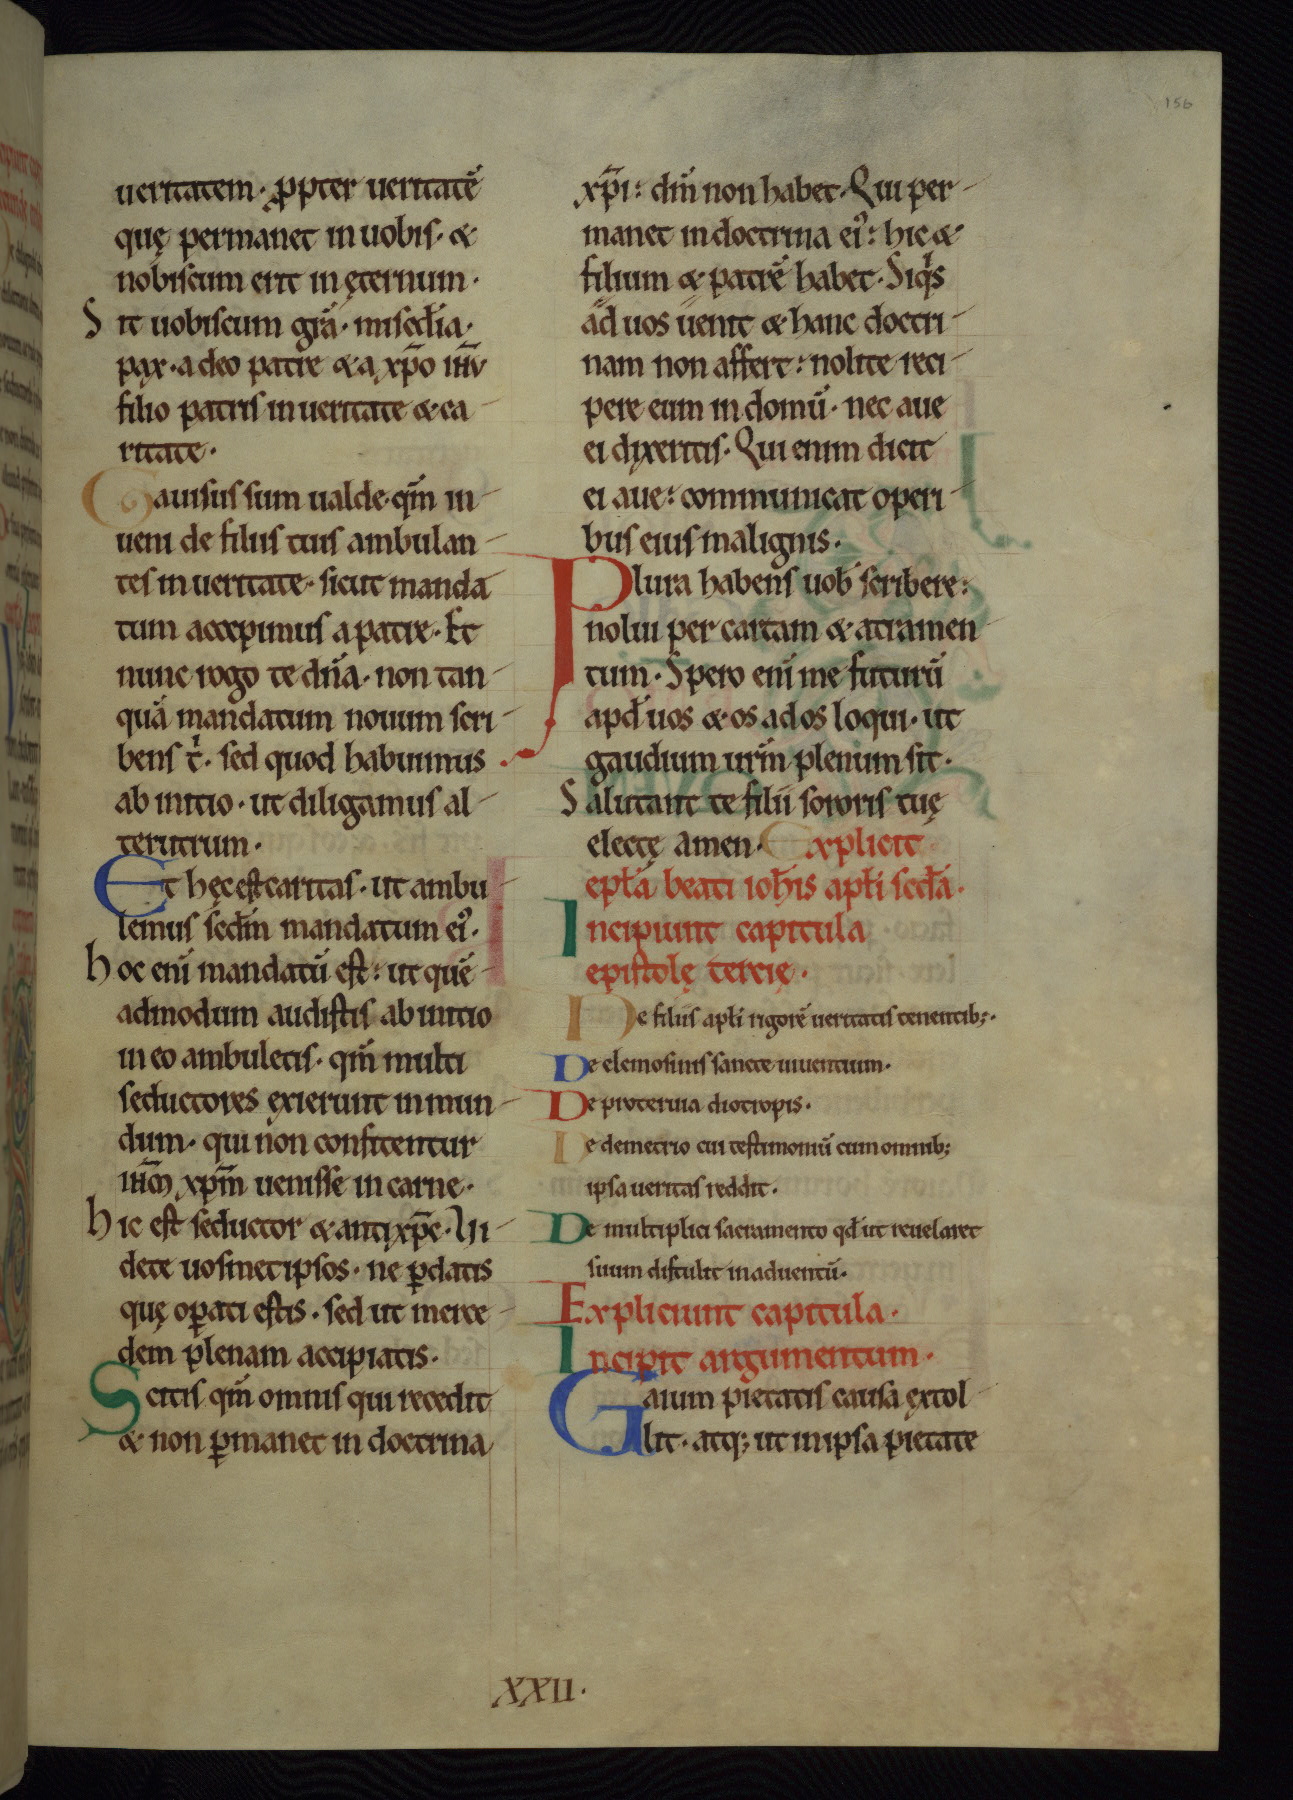 156
ueritatem · ꝓpter ueritatē
quę permanet in uobis · &
nobiscum erit in ęternum ·
Sit uobiscum gr̄a · mis̄cd̄ia ·
pax · a deo patre & a xp̄o ih̄u
filio patris in ueritate & ca
ritate ·
Gauisus sum ualde · qm̄ in
ueni de filiis tuis ambulan
tes in ueritate · sicut manda
tum accepimus a patre · Et
nunc rogo te dn̄a · non tan
quā mandatum nouum scri
bens tⁱ · sed quod habuimus
ab initio · ut diligamus al
terutrum ·
Et hęc est caritas · ut ambu
lemus secd̄m mandatum eiꝰ ·
hoc eni̅ mandatū est : ut quē
admodum audistis ab initio
in eo ambuletis · qm̄ multi
seductores exierunt in mun
dum · qui non confitentur
ih̄m xp̄m uenisse in carne ·
hic est seductor & antixp̄c · Ui
dete uosmetipsos · ne ꝑdatis
quę oꝑati estis · sed ut merce
dem plenam accipiatis ·
Scitis qm̄ omnis qui recedit
& non ꝑmanet in doctrina
xp̄i : dm̄ non habet · Qui per
manet in doctrina eiꝰ : hic &
filium & patrē habet · Siqⁱs
ad uos uenit & hanc doctri
nam non affert : nolite reci
pere eum in domū · nec aue
ei dixeritis · Qui enim dicit
ei aue : communicat operi
bus eius malignis ·
Plura habens uob̄ scribere :
nolui per cartam & atramen
tum · Spero eni̅ me futurū
apd̄ uos & os ad os loqui · ut
gaudium ur̄m plenum sit ·
Salutant te filii sororis tuę
electę amen · Explicit
epl̄a beati ioh̄is apl̄i secd̄a ·
Incipiunt capitula
epistolę tercię ·
De filiis apl̄i rigorē ueritatis tenentib; ·
De elemosinis sancte uiuentium ·
De proterua diotropis ·
De demetrio cui testimoniū cum omnib;
ipsa ueritas reddit ·
De multiplici sacramento qd̄ ut reuelaret
suum distulit in aduentū ·
Expliciunt capitula ·
Incipit argumentum ·
Gaium pietatis causa extol
lit · atq; ut in ipsa pietate
XXII ·